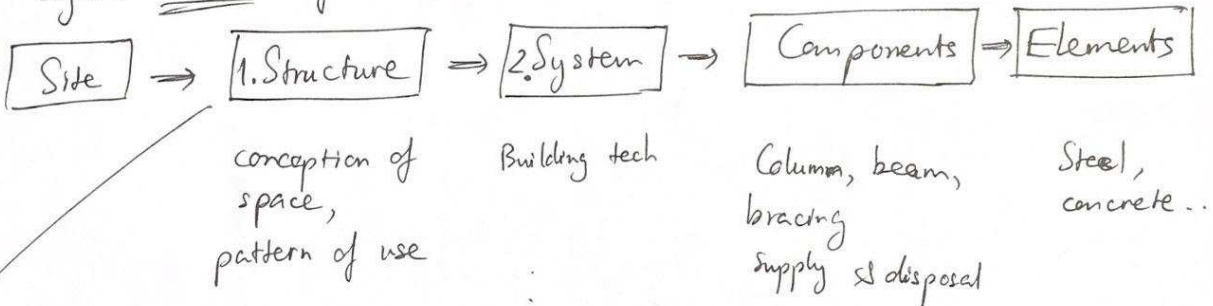 Site ⇒ 1. Structure ⇒ 2. System → Components ⇒ Elements
conception of
space,
pattern of use
Building tech
Column, beam,
bracing
supply & disposal
Steel,
concrete..